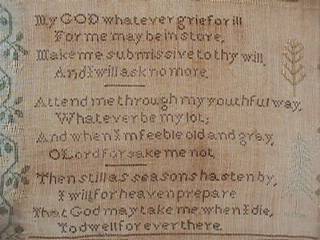 My GOD whatever grief or ill
For me may be in store,
Make me submissive to thy will
And I will ask no more.
Attend me through my youthful way,
Whatever be my lot;
And when Im feeble old and gray,
O Lord forsake me not,
Then still as seasons hasten by,
I will for heaven prepare
That God may take me when I die,
To dwell for ever there.